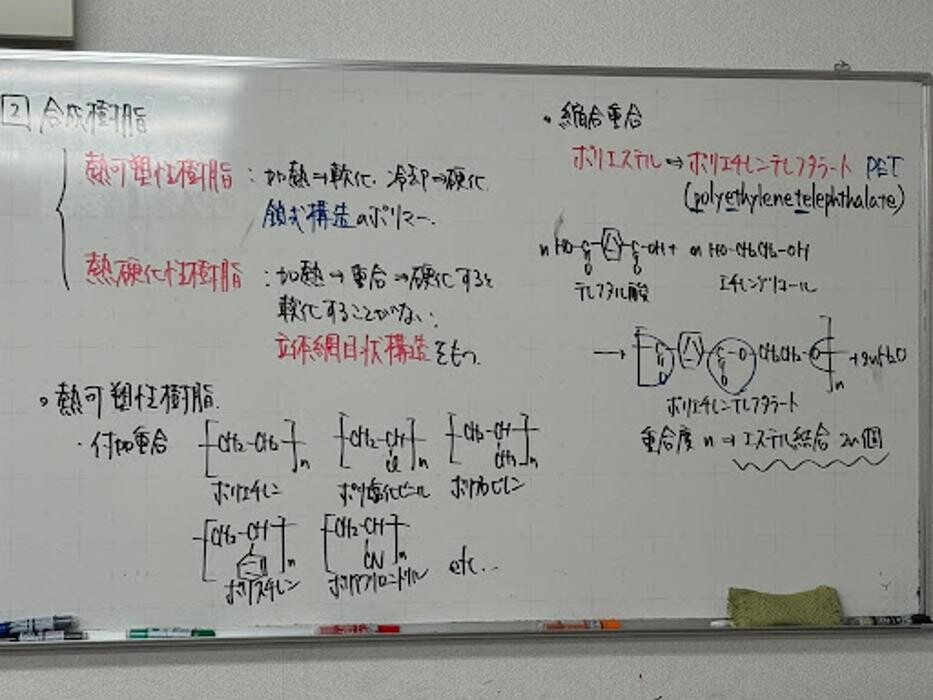 2 合成樹脂
熱可塑性樹脂 : 加熱→軟化、冷却→硬化
鎖式構造のポリマー.
熱硬化性樹脂 : 加熱→重合→硬化すると
軟化することがない.
立体網目状構造をもつ
。熱可塑性樹脂
・付加重合
[CH2-CH2]n [CH2-CH Cl]n [CH2-CH CH3]n
ポリエチレン ポリ塩化ビニル ポリプロピレン
[CH2-CH]n [CH2-CH CN]n etc...
ポリスチレン ポリアクリロニトリル
・縮合重合
ポリエステル⇒ポリエチレンテレフタラート PET
(polyethylenetelephthalate)
n HO-C O C O -OH + n HO-CH2CH2-OH
テレフタル酸 エチレングリコール
→ [C O C O -O-CH2CH2-O]n +2nH2O
ポリエチレンテレフタラート
重合度 n ⇒ エステル結合 2n個